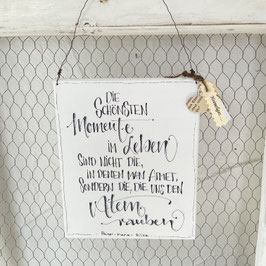 DIE
SCHÖNSTEN
Momente
im Leben
SIND NICHT DIE,
IN DENEN MAN ATMET,
SONDERN DIE, DIE UNS DEN
Atem
rauben